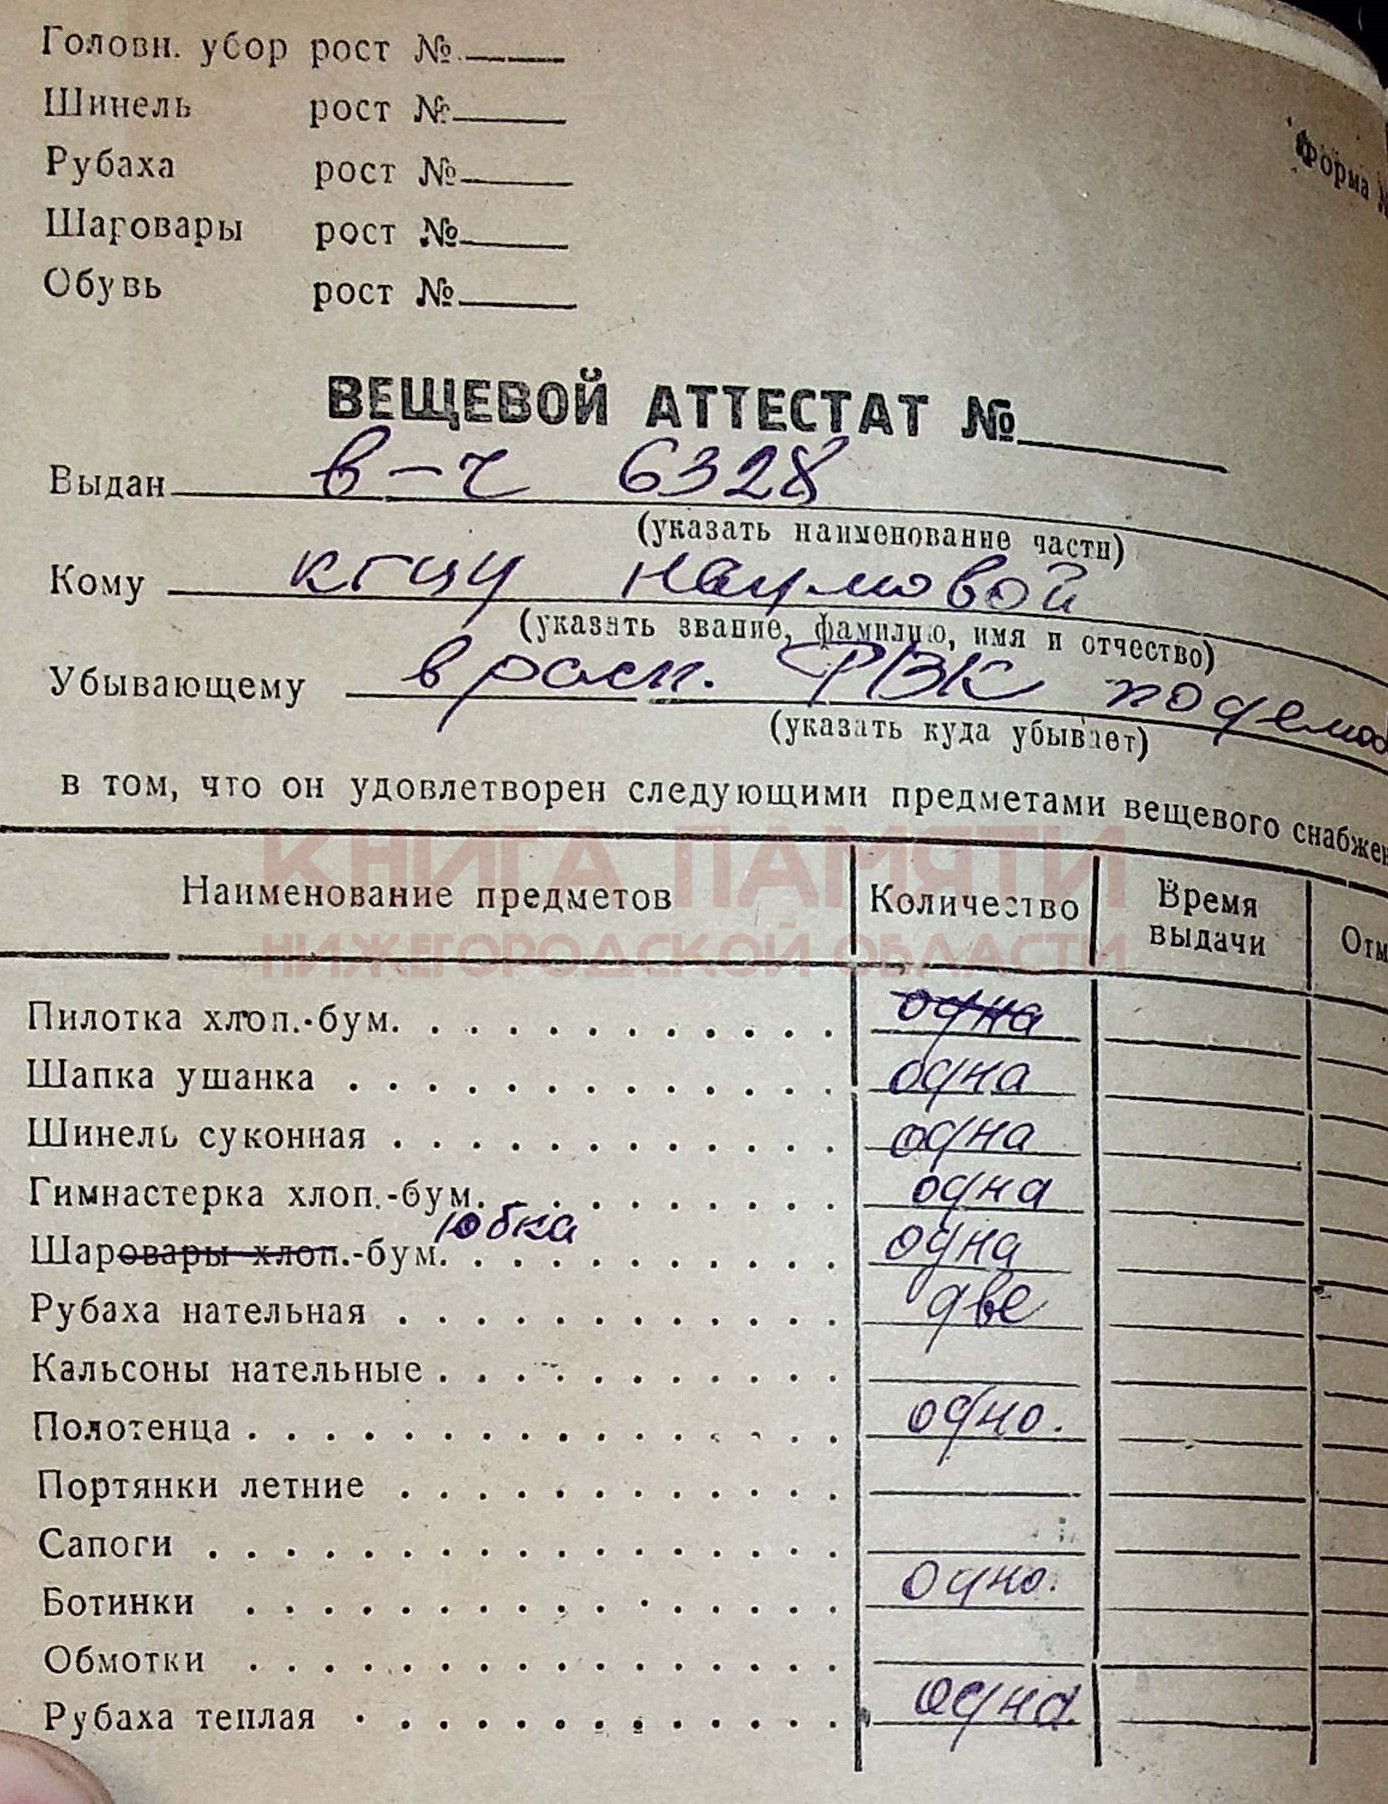 Головн. убор рост №
Шинель рост №
Рубаха рост №
Шаровары рост №
Обувь рост №
Форма №
ВЕЩЕВОЙ АТТЕСТАТ №
Выдан в-ч 6328
(указать наименование части)
Кому Наумовой
(указать звание, фамилию, имя и отчество)
Убывающему в расп. РВК по демоб
(указать куда убывает)
в том, что он удовлетворен следующими предметами вещевого снабжен
КНИГА ПАМЯТИ
НИЖЕГОРОДСКОЙ ОБЛАСТИ
Наименование предметов Количество Время выдачи Отм
Пилотка хлоп.-бум. одна
Шапка ушанка одна
Шинель суконная одна
Гимнастерка хлоп.-бум. одна
юбка
Шаровары хлоп.-бум. одна
Рубаха нательная две
Кальсоны нательные
Полотенца одно.
Портянки летние
Сапоги
Ботинки одно.
Обмотки
Рубаха теплая одна